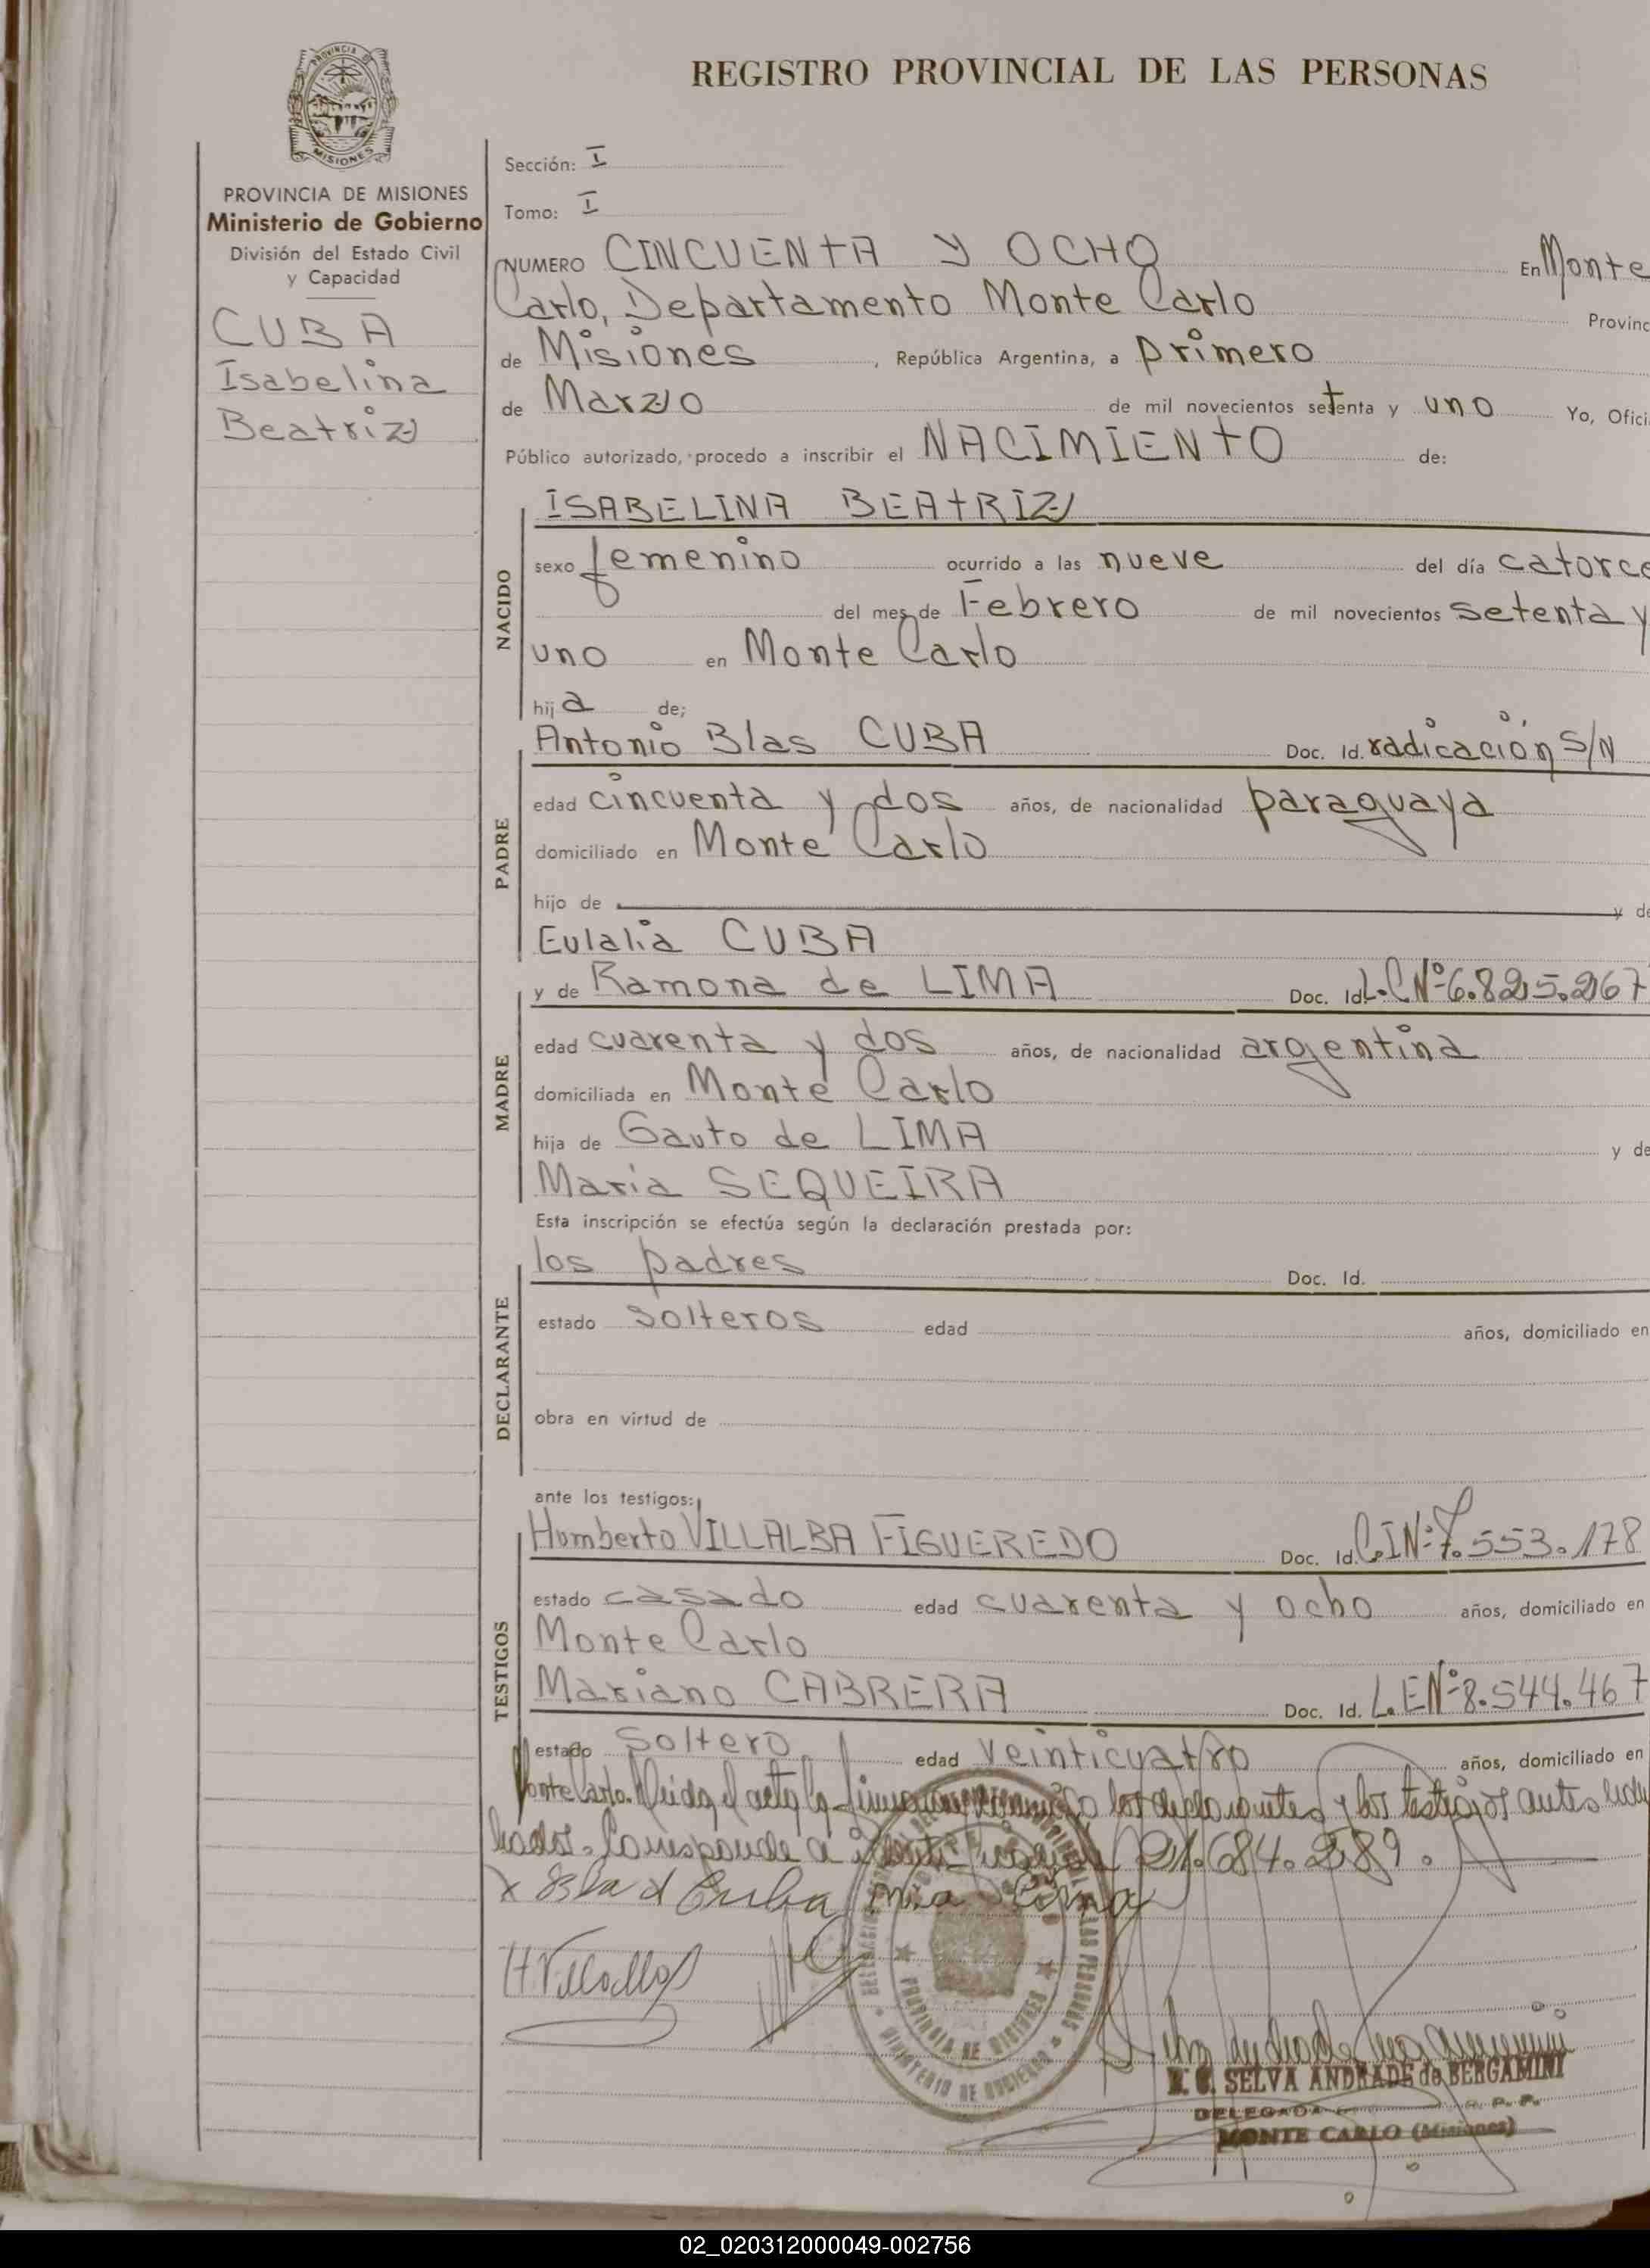 REGISTRO PROVINCIAL DE LAS PERSONAS
PROVINCIA
MISIONES
PROVINCIA DE MISIONES
Ministerio de Gobierno
División del Estado Civil
y Capacidad
CUBA
Isabelina
Beatriz
Sección: I
Tomo: I
NUMERO CINCUENTA Y OCHO En Monte
Carlo, Departamento Monte Carlo Provinc
de Misiones, República Argentina, a primero
de Marzo de mil novecientos setenta y uno Yo, Ofici
Público autorizado, procedo a inscribir el NACIMIENTO de:
NACIDO
ISABELINA BEATRIZ
sexo femenino ocurrido a las nueve del día catorce
del mes de Febrero de mil novecientos setenta y
uno en Monte Carlo
hija de;
PADRE
Antonio Blas CUBA Doc. Id. radicación S/N
edad cincuenta y dos años, de nacionalidad paraguaya
domiciliado en Monte Carlo
hijo de y de
Eulalia CUBA
MADRE
y de Ramona de LIMA Doc. Id. L.C Nº 6.825.267
edad cuarenta y dos años, de nacionalidad argentina
domiciliada en Monte Carlo
hija de Gauto de LIMA y de
Maria SEQUEIRA
Esta inscripción se efectúa según la declaración prestada por:
DECLARANTE
los padres Doc. Id.
estado solteros edad años, domiciliado en
obra en virtud de
ante los testigos:
TESTIGOS
Humberto VILLALBA FIGUEREDO Doc. Id. C.I Nº 7.553.178
estado casado edad cuarenta y ocho años, domiciliado en
Monte Carlo
Mariano CABRERA Doc. Id. L.E Nº 8.544.467
estado soltero edad veinticuatro años, domiciliado en
Monte Carlo. Leida el acta la los declarantes y los testigos antes
Corresponde a 21.684.289.
PROVINCIA DE MISIONES
MINISTERIO DE GOBIERNO
SELVA ANDRADE de BERGAMINI
DELEGADA R. P. P.
MONTE CARLO (Misiones)
02_020312000049-002756